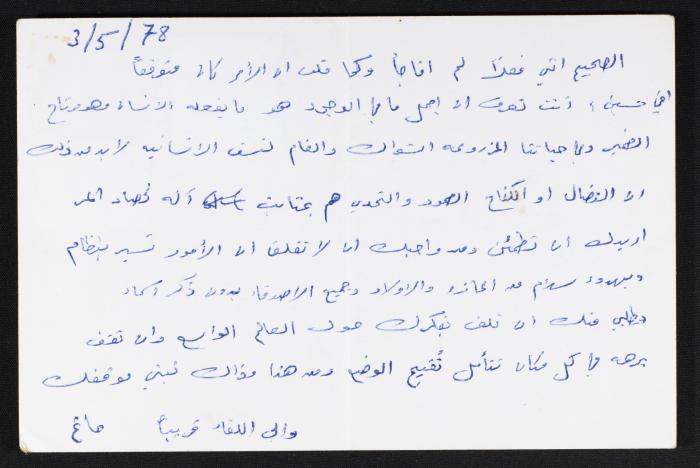 3/5/78
الصحيح انني فعلاً لم افاجأ وكما قلت ان الأمر كان متوقعاً
اخي حسين، أنت تعرف ان اجمل ما في الوجود هو ما يفعله الانسان وهو مرتاح
الضمير وفي حياتنا المزروعه اشواك والغام لنسف الانسانيه لابد من ذلك
ان النضال او الكفاح الصمود والتحدي هم بمثابت آله لحصاد المر
اريدك ان تطمئن ومن واجبك ان لا تقلق ان الأمور تسير بنظام
وبهدوء سلام من العائله والاولاد وجميع الاصدقاء بدون ذكر اسماء
وطلبي منك ان تلف بفكرك حول العالم الواسع وان تقف
برهه في كل مكان تتأمل تُقيم الوضع ومن هنا وهناك تبني موقفك
والى اللقاء قريباً